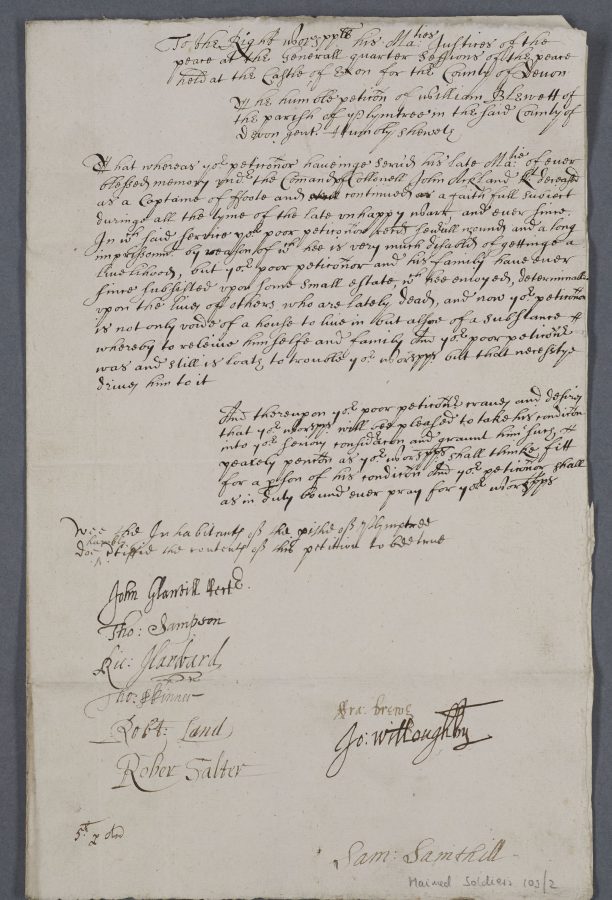 To the Right worspple his Maties Justices of the
peace at the Generall quarter Sessions of the peace
held at the Castle of Exon for the County of Devon
The humble peticon of William Blewett of
the parish of Plymtree in the said County of
Devon gent Humbly sheweth
That whereas yor peticonor haveinge served his late Matie of ever
blessed memory undr the Comand of Collonell John Ackland Kt deceased
as a Captaine of ffoote and continued as a faithfull subiect
duringe all the tyme of the late unhappy warr, and ever since.
In wch said service yor poor peticonor recd sevall wounds and a long
imprisonmt by reason of wch hee is very much disabled of gettinge a
livelihood, but yor poor peticonor and his family have ever
since subsisted upon some small estate wch hee enioyed, determinable
upon the lives of others who are lately dead, and now yor peticonor
is not only voide of a house to live in but alsoe of a substance
whereby to releive himselfe and family And yor poor peticonr
was and still is loath to trouble yor worspps but that necessitye
drives him to it
And thereupon yor poor peticonr craves and desires
that yor worspps will bee pleased to take his condicon
into yor serious consideracon and graunt him such
yearely pencon as yor worspps shall thinke fitt
for a pson of his condicon And yor peticonor shall
as in duty bound ever pray for yor worspps
Wee the Inhabitants of the pishe of Plymtree
humbly
doe certifie the contents of this petition to bee true
John Glanvill Rectr
Tho: Sampson
Ric: Harward
Tho: Skinner
Robt: Land
Rober Salter
Fra: Drewe
Jo: Willoughby
5th 2 ord
Sam: Samthill
Maimed Soldiers 103/2